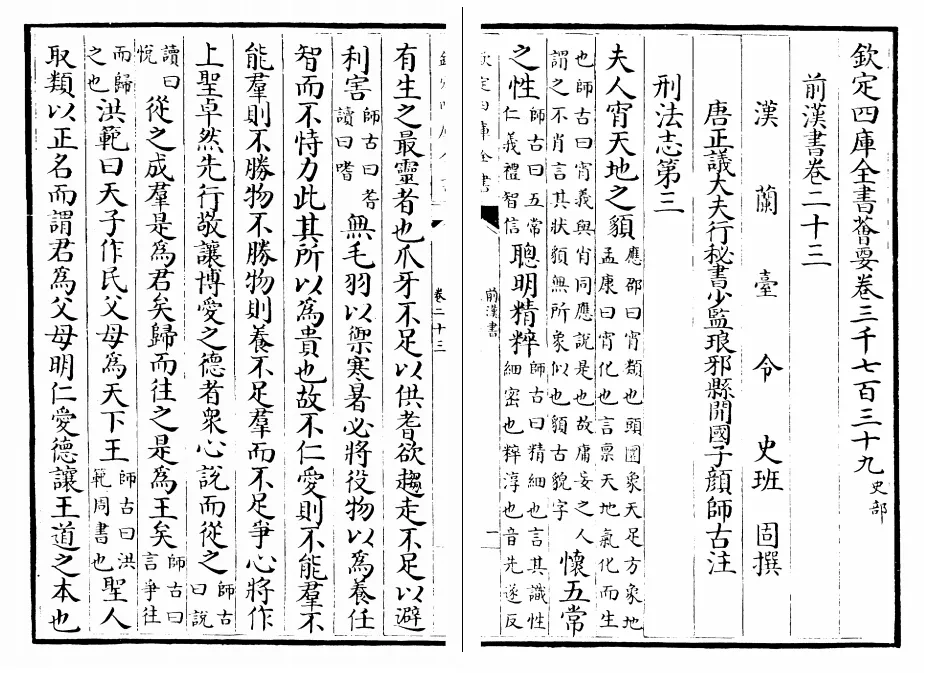 欽定四庫全書薈要卷三千七百三十九史部
前漢書卷二十三
漢蘭臺令史班固撰
唐正議大夫行秘書少監琅邪縣開國子顏師古注
刑法志第三
夫人宵天地之䫉應邵曰宵類也頭圜象天足方象地孟康曰宵化也言禀天地氣化而生
也師古曰宵義與肖同應說是也故庸妄之人謂之不肖言其狀䫉無所象似也䫉古貌字懷五常
之性師古曰五常仁義禮智信聰明精粹師古曰精細也言其識性細密也粹淳也音先遂反
欽定四庫全書
前漢書
一
卷二十三
有生之最靈者也爪牙不足以供耆欲趨走不足以避
利害師古曰耆讀曰嗜無毛羽以禦寒暑必將役物以為養任
智而不恃力此其所以為貴也故不仁愛則不能羣不
能羣則不勝物不勝物則養不足羣而不足爭心將作
上聖卓然先行敬讓博愛之德者衆心說而從之師古曰說
讀曰悅從之成羣是為君矣歸而往之是為王矣師古曰言爭往
而歸之也洪範曰天子作民父母為天下王師古曰洪範周書也聖人
取類以正名而謂君為父母明仁愛德讓王道之本也